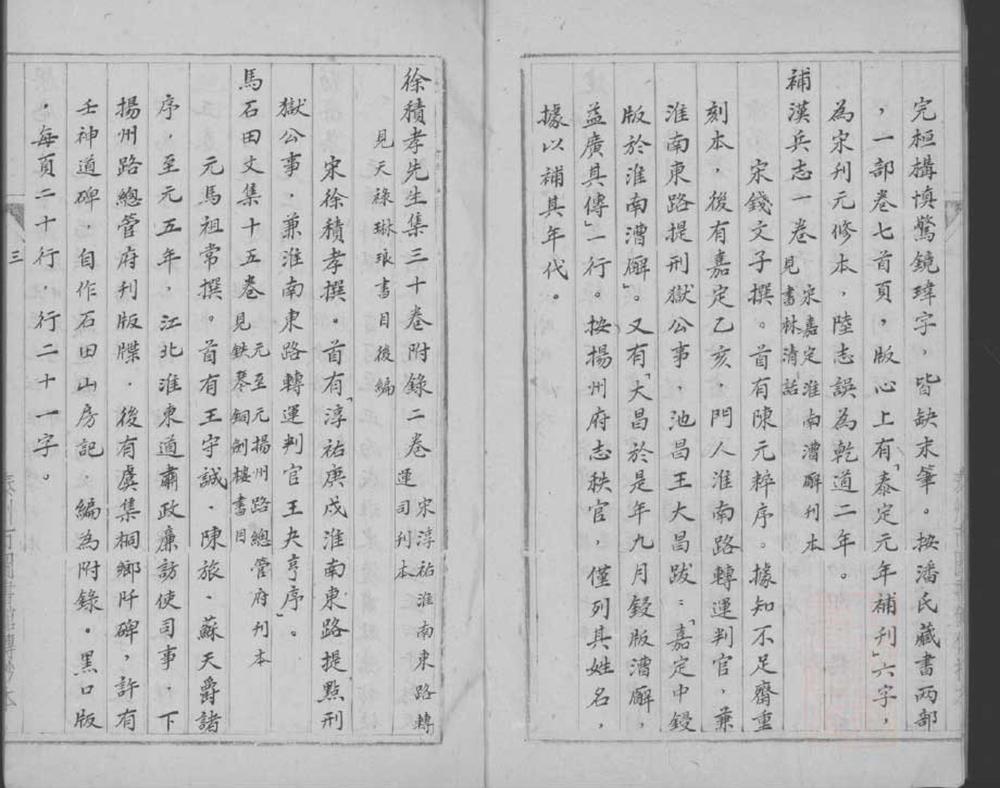 完桓構慎驚鏡瑋字，皆缺末筆。按潘氏藏書兩部
，一部卷七首頁，版心上有「泰定元年補刊」六字，
為宋刊元修本，陸志誤為乾道二年。
補漢兵志一卷見
宋嘉定淮南漕廨刊本
書林清話
宋錢文子撰。首有陳元粹序。據知不足齋重
刻本，後有嘉定乙亥，門人淮南路轉運判官，兼
淮南東路提刑獄公事，池昌王大昌跋：「嘉定中鋟
版於淮南漕廨」。又有「大昌於是年九月鋟版漕廨，
益廣其傳」一行。按揚州府志秩官，僅列其姓名，
據以補其年代。
徐積孝先生集三十卷附錄二卷
宋淳祐淮南東路轉
運司刊本
見天祿琳琅書目後編
宋徐積孝撰。首有「淳祐庚戌淮南東路提點刑
獄公事，兼淮南東路轉運判官王夬亨序」。
馬石田文集十五卷見
元至元揚州路總管府刊本
鉄琴銅劍樓書目
元馬祖常撰。首有王守誠．陳旅．蘇天爵諸
序，至元五年，江北淮東道肅政廉訪使司事，下
揚州路總管府刊版牒．後有虞集桐鄉阡碑，許有
壬神道碑．自作石田山房記．編為附錄。黑口版
．每頁二十行．行二十一字。
三